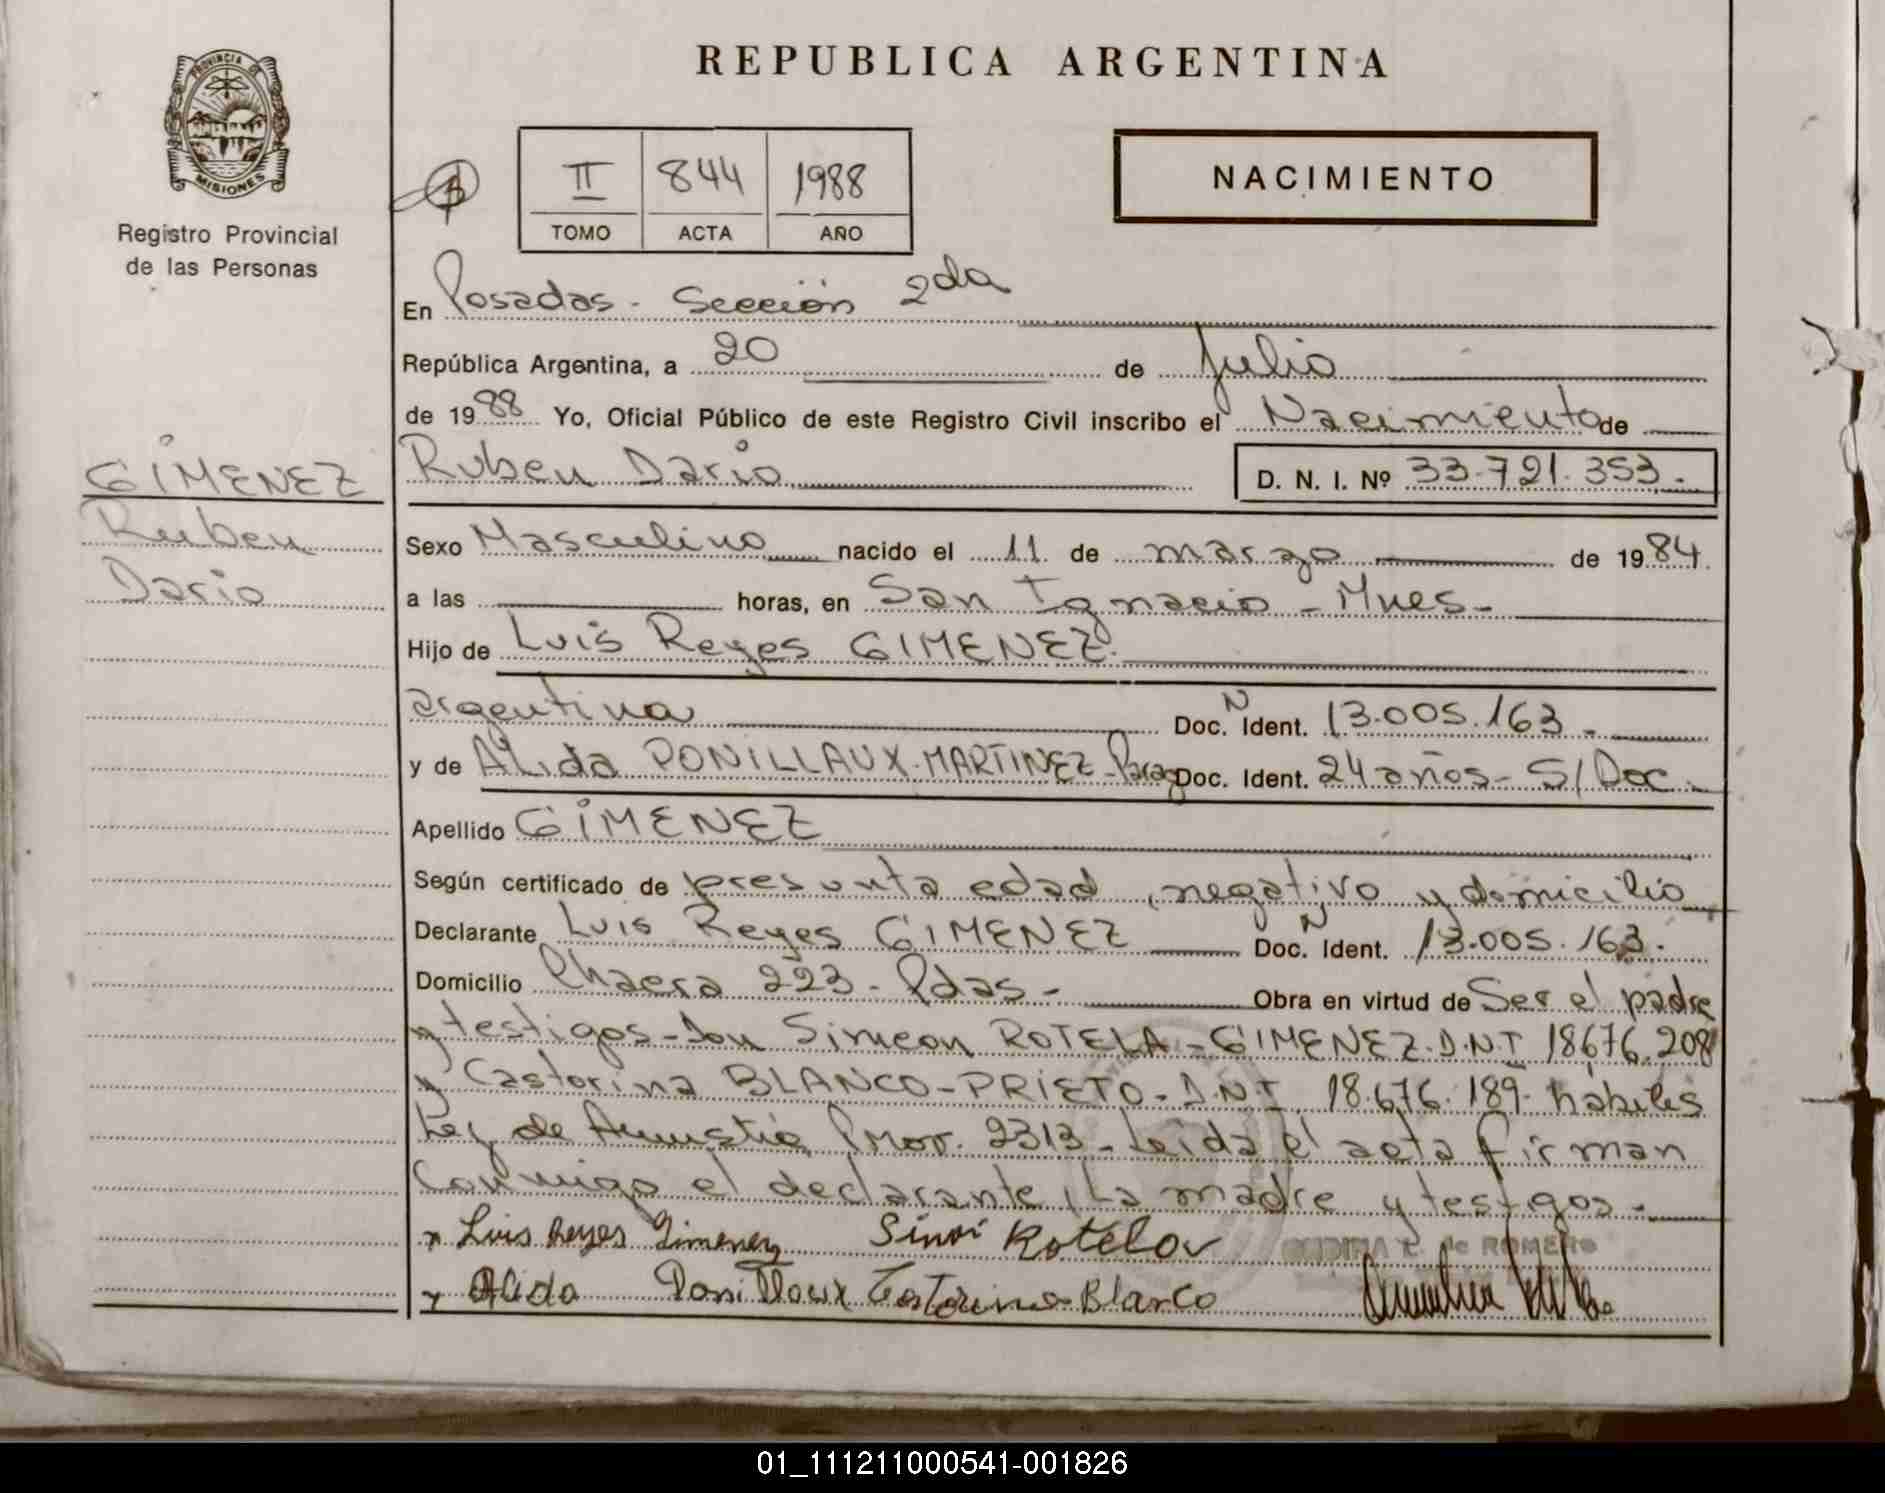 PROVINCIA DE
MISIONES
Registro Provincial
de las Personas
GIMENEZ
Ruben
Dario
REPUBLICA ARGENTINA
II 844 1988
TOMO ACTA AÑO
NACIMIENTO
En Posadas - Sección 2da
República Argentina, a 20 de Julio
de 1988 Yo, Oficial Público de este Registro Civil inscribo el Nacimiento de
Ruben Dario D. N. I. Nº 33.721.353.-
Sexo Masculino nacido el 11 de marzo de 1984.
a las horas, en San Ignacio - Mnes-
Hijo de Luis Reyes GIMENEZ.
argentina Doc. N Ident. 13.005.163.-
y de Alida DONILLAUX-MARTINEZ-Parag Doc. Ident. 24 años- S/Doc.-
Apellido GIMENEZ
Según certificado de presunta edad, negativo y domicilio
Declarante Luis Reyes GIMENEZ Doc. N Ident. 13.005.163.
Domicilio Chacra 223- Pdas- Obra en virtud de Ser el padre
y testigos-Don Simeon ROTELA-GIMENEZ.D.N.I 18676.208
y Castorina BLANCO-PRIETO-D.N.I. 18.676.189- hábiles
Ley de Amnistia Prov. 2313-Leída el acta firman
Conmigo el declarante, la madre y testigos.-
x Luis Reyes Gimenez Rotela
de ROMERO
Alida Blanco
01_111211000541-001826